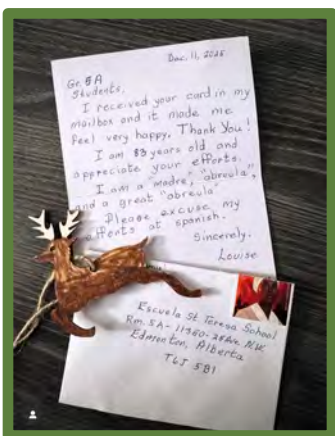 Dec. 11, 2025
Gr. 5A
Students,
I received your card in my
mailbox and it made me
feel very happy. Thank You!
I am 83 years old and
appreciate your efforts.
I am a "madre", "abreula",
and a great "abreula"
Please excuse my
efforts at spanish.
Sincerely,
Louise
Escuela St Teresa School
Rm. 5A - 11350-25Ave N.W.
Edmonton, Alberta
T6J 5B1